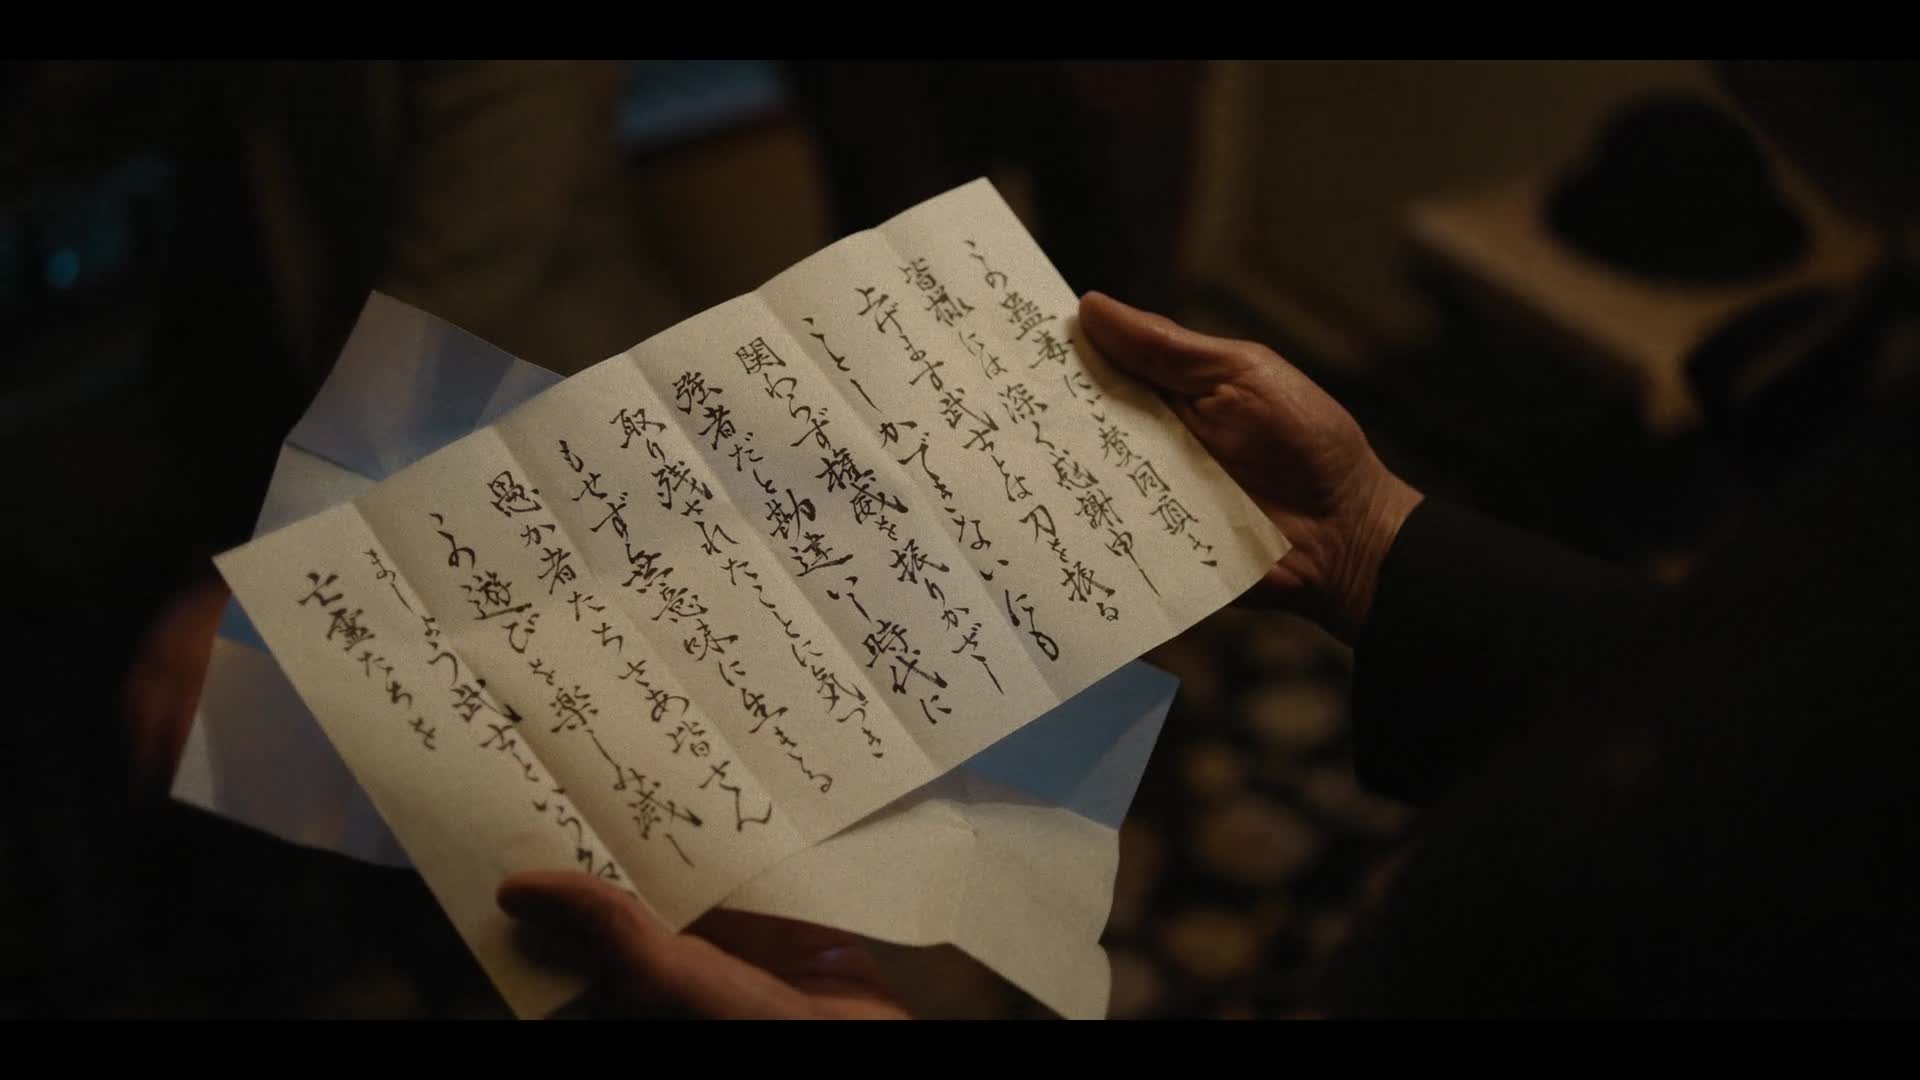 この蠱毒にご賛同頂き
皆様には深く感謝申し
上げます武士とは刀を振る
ことしかできないにも
関わらず権威を振りかざし
強者だと勘違いし時代に
取り残されたことに気づき
もせず無意味に生きる
愚か者たちさあ皆さん
この遊びを楽しみ試し
ましょう武士という名
亡霊たちを